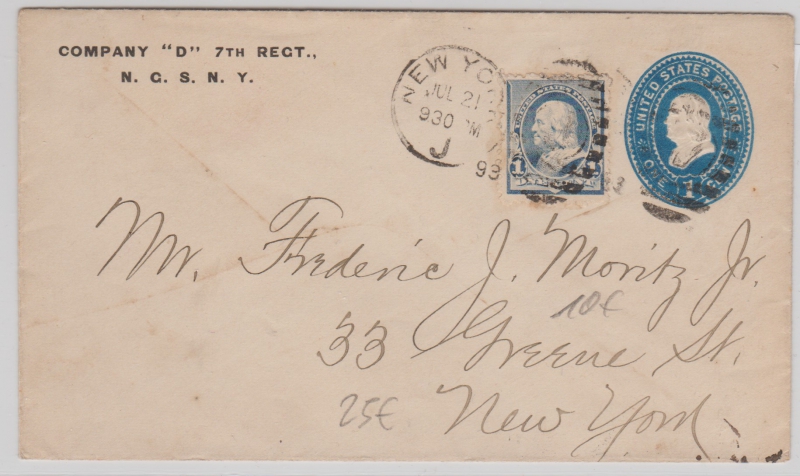 COMPANY "D" 7TH REGT.,
N. G. S. N. Y.
NEW YO
JUL 21
930 PM
J
93
1
UNITED STATES POSTAGE
ONE
1
Mr. Frederic J. Moritz Jr.
10€
33 Greene St.
25€
New York